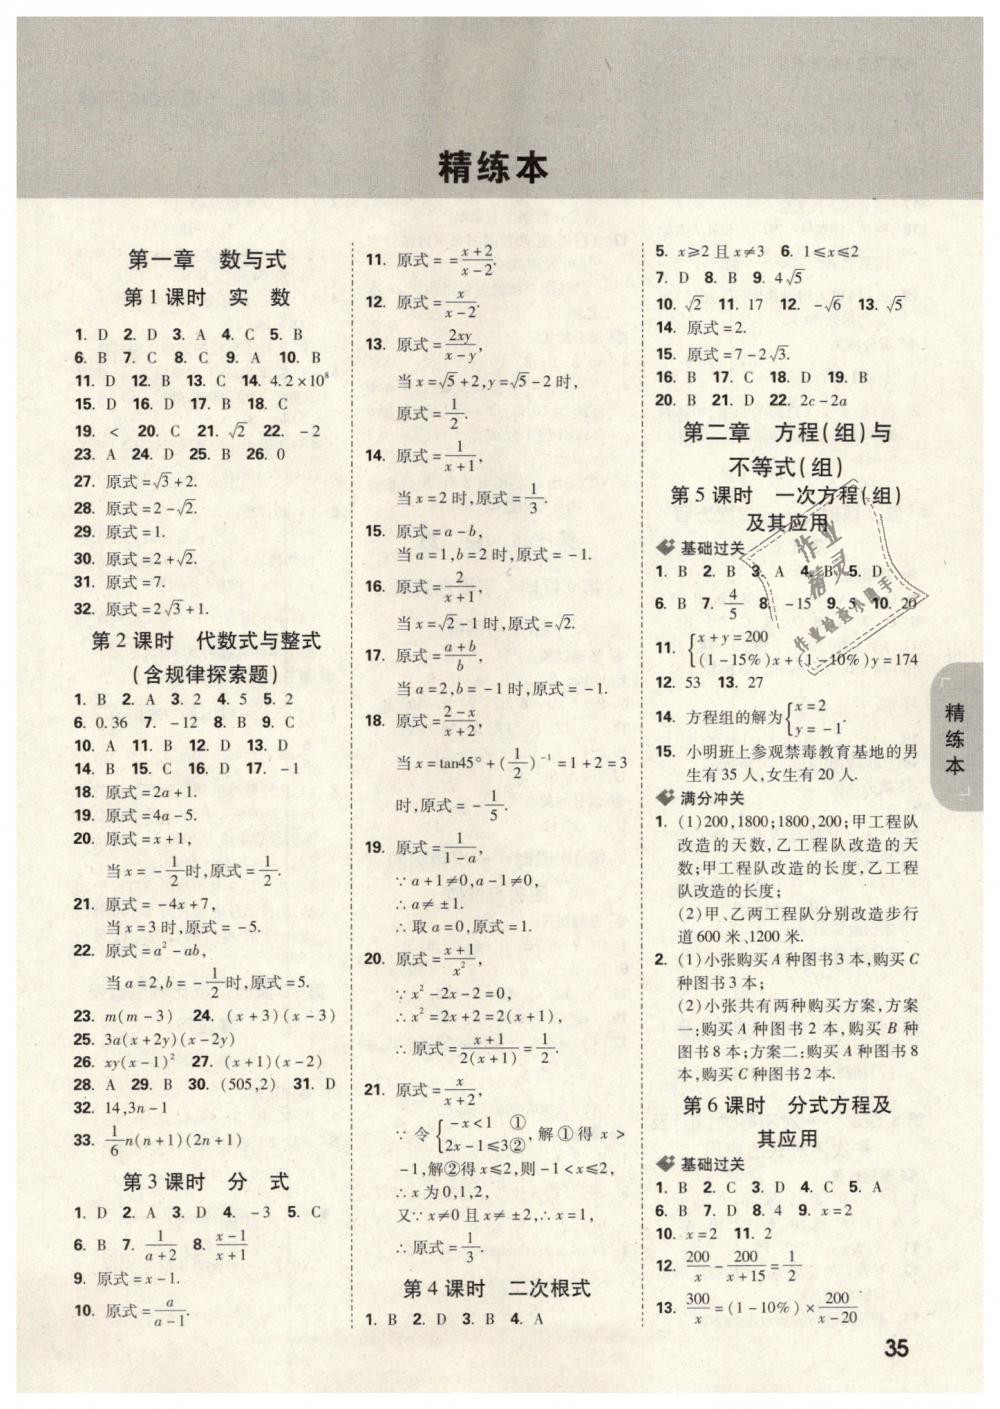 精练本
第一章 数与式
第1课时 实 数
1. D 2. D 3. A 4. C 5. B
6. B 7. C 8. C 9. A 10. B
11. D 12. B 13. C 14. 4.2×10⁸
15. D 16. D 17. B 18. C
19. < 20. C 21. √2 22. -2
23. A 24. D 25. B 26. 0
27. 原式=√3+2.
28. 原式=2-√2.
29. 原式=1.
30. 原式=2+√2.
31. 原式=7.
32. 原式=2√3+1.
第2课时 代数式与整式
(含规律探索题)
1. B 2. A 3. 2 4. 5 5. 2
6. 0.36 7. -12 8. B 9. C
10. A 11. B 12. D 13. D
14. B 15. C 16. D 17. -1
18. 原式=2a+1.
19. 原式=4a-5.
20. 原式=x+1,
当x=-1/2时,原式=1/2.
21. 原式=-4x+7,
当x=3时,原式=-5.
22. 原式=a²-ab,
当a=2,b=-1/2时,原式=5.
23. m(m-3) 24. (x+3)(x-3)
25. 3a(x+2y)(x-2y)
26. xy(x-1)² 27. (x+1)(x-2)
28. A 29. B 30. (505,2) 31. D
32. 14,3n-1
33. 1/6n(n+1)(2n+1)
第3课时 分 式
1. D 2. A 3. D 4. -3 5. C
6. B 7. 1/(a+2) 8. (x-1)/(x+1)
9. 原式=x-1.
10. 原式=a/(a-1).
11. 原式==(x+2)/(x-2).
12. 原式=x/(x-2).
13. 原式=2xy/(x-y),
当x=√5+2,y=√5-2时,
原式=1/2.
14. 原式=1/(x+1),
当x=2时,原式=1/3.
15. 原式=a-b,
当a=1,b=2时,原式=-1.
16. 原式=2/(x+1),
当x=√2-1时,原式=√2.
17. 原式=(a+b)/b,
当a=2,b=-1时,原式=-1.
18. 原式=(2-x)/(x+2),
当x=tan45°+(1/2)⁻¹=1+2=3
时,原式=-1/5.
19. 原式=1/(1-a),
∵a+1≠0,a-1≠0,
∴a≠±1.
∴取a=0,原式=1.
20. 原式=(x+1)/x²,
∵x²-2x-2=0,
∴x²=2x+2=2(x+1),
∴原式=(x+1)/(2(x+1))=1/2.
21. 原式=x/(x+2),
∵令{-x<1 ①
2x-1≤3②,解①得x>
-1,解②得x≤2,则-1<x≤2,
∴x为0,1,2,
又∵x≠0且x≠±2,∴x=1,
∴原式=1/3.
第4课时 二次根式
1. B 2. D 3. B 4. A
5. x≥2且x≠3 6. 1≤x≤2
7. D 8. B 9. 4√5
10. √2 11. 17 12. -√6 13. √5
14. 原式=2.
15. 原式=7-2√3.
16. B 17. C 18. D 19. B
20. B 21. D 22. 2c-2a
第二章 方程(组)与
不等式(组)
第5课时 一次方程(组)
及其应用
基础过关
1. B 2. B 3. A 4. B 5. D
6. B 7. 4/5 8. -15 9. 5 10. 20
11. {x+y=200
(1-15%)x+(1-10%)y=174
12. 53 13. 27
14. 方程组的解为{x=2
y=-1.
15. 小明班上参观禁毒教育基地的男
生有35人,女生有20人.
满分冲关
1. (1)200,1800;1800,200;甲工程队
改造的天数,乙工程队改造的天
数;甲工程队改造的长度,乙工程
队改造的长度;
(2)甲、乙两工程队分别改造步行
道600米、1200米.
2. (1)小张购买A种图书3本,购买C
种图书3本;
(2)小张共有两种购买方案,方案
一:购买A种图书2本,购买B种
图书8本;方案二:购买A种图书8
本,购买C种图书2本.
第6课时 分式方程及
其应用
基础过关
1. B 2. C 3. D 4. C 5. A
6. B 7. D 8. 4 9. x=2
10. x=2 11. 2
12. 200/x-200/(x+15)=1/2
13. 300/x=(1-10%)×200/(x-20)
作业
精灵
作业检查小助手
精练本
35